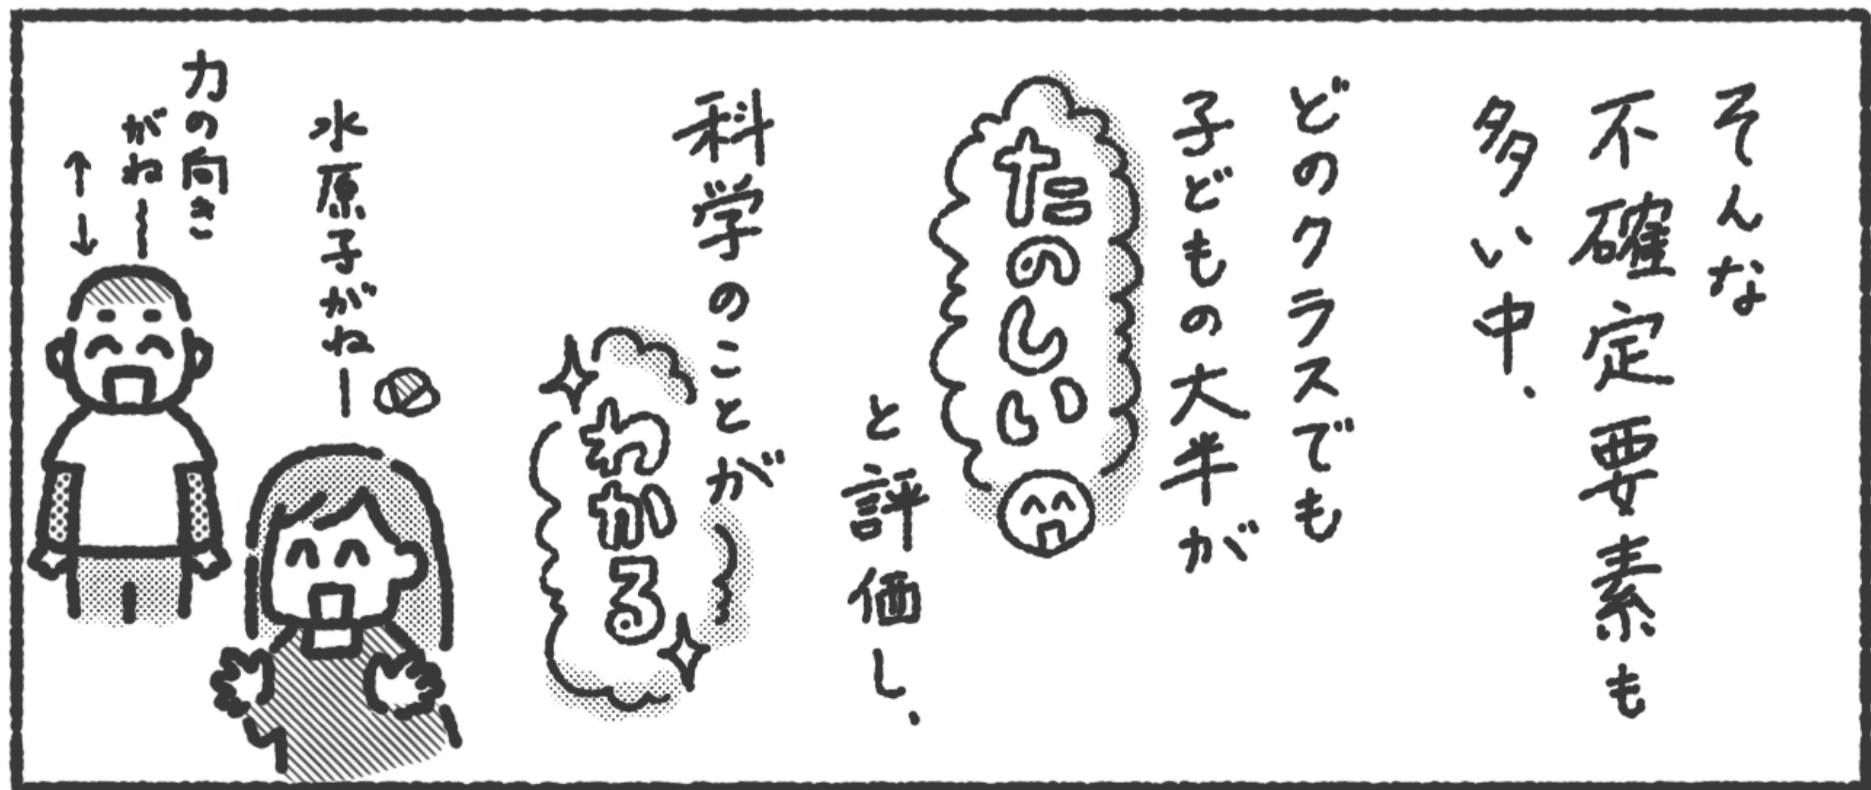 そんな
不確定要素も
多い中、
どのクラスでも
子どもの大半が
たのしい
と評価し、
科学のことが
わかる
水原子がねー
力の向き
がね〜